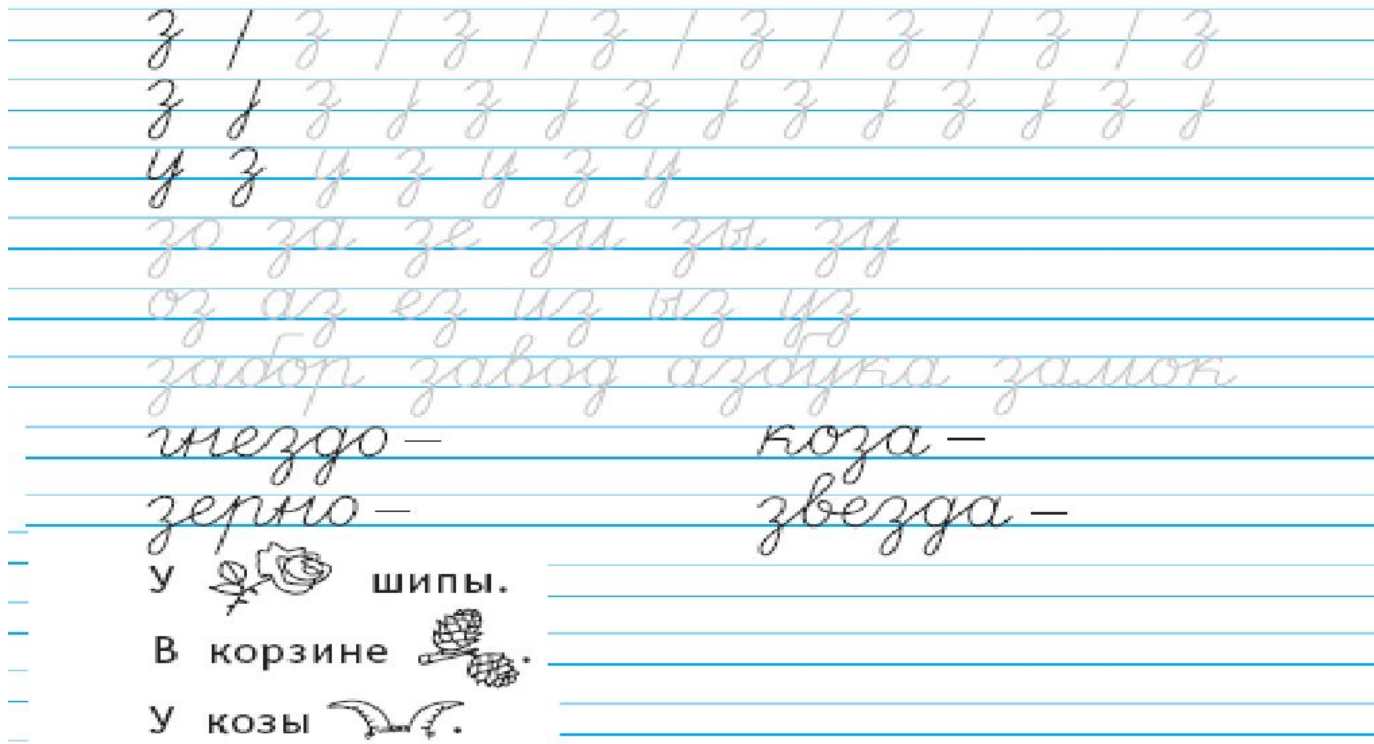 з / з / з / з / з / з / з / з
з j з j з j з j з j з j з j
у з у з у з у
зо за зе зи зы зу
оз аз ез из ыз уз
забор завод азбука замок
гнездо — коза —
зерно — звезда —
У шипы.
В корзине .
У козы .